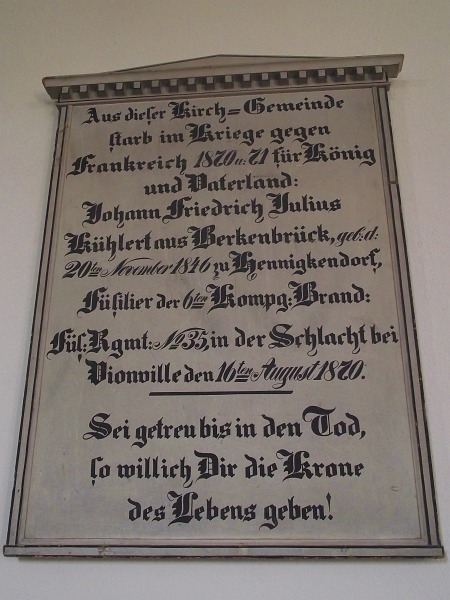 Aus dieſer Kirch=Gemeinde
ſtarb im Kriege gegen
Frankreich 1870 u: 71 für König
und Vaterland:
Johann Friedrich Julius
Kühlert aus Berkenbrück, geb: d:
20ten November 1846 zu Hennigkendorf,
Füſilier der 6ten Kompg: Brand:
Füſ: Rgmt: No 35, in der Schlacht bei
Vionville den 16ten August 1870.
Sei getreu bis in den Tod,
ſo will ich Dir die Krone
des Lebens geben!